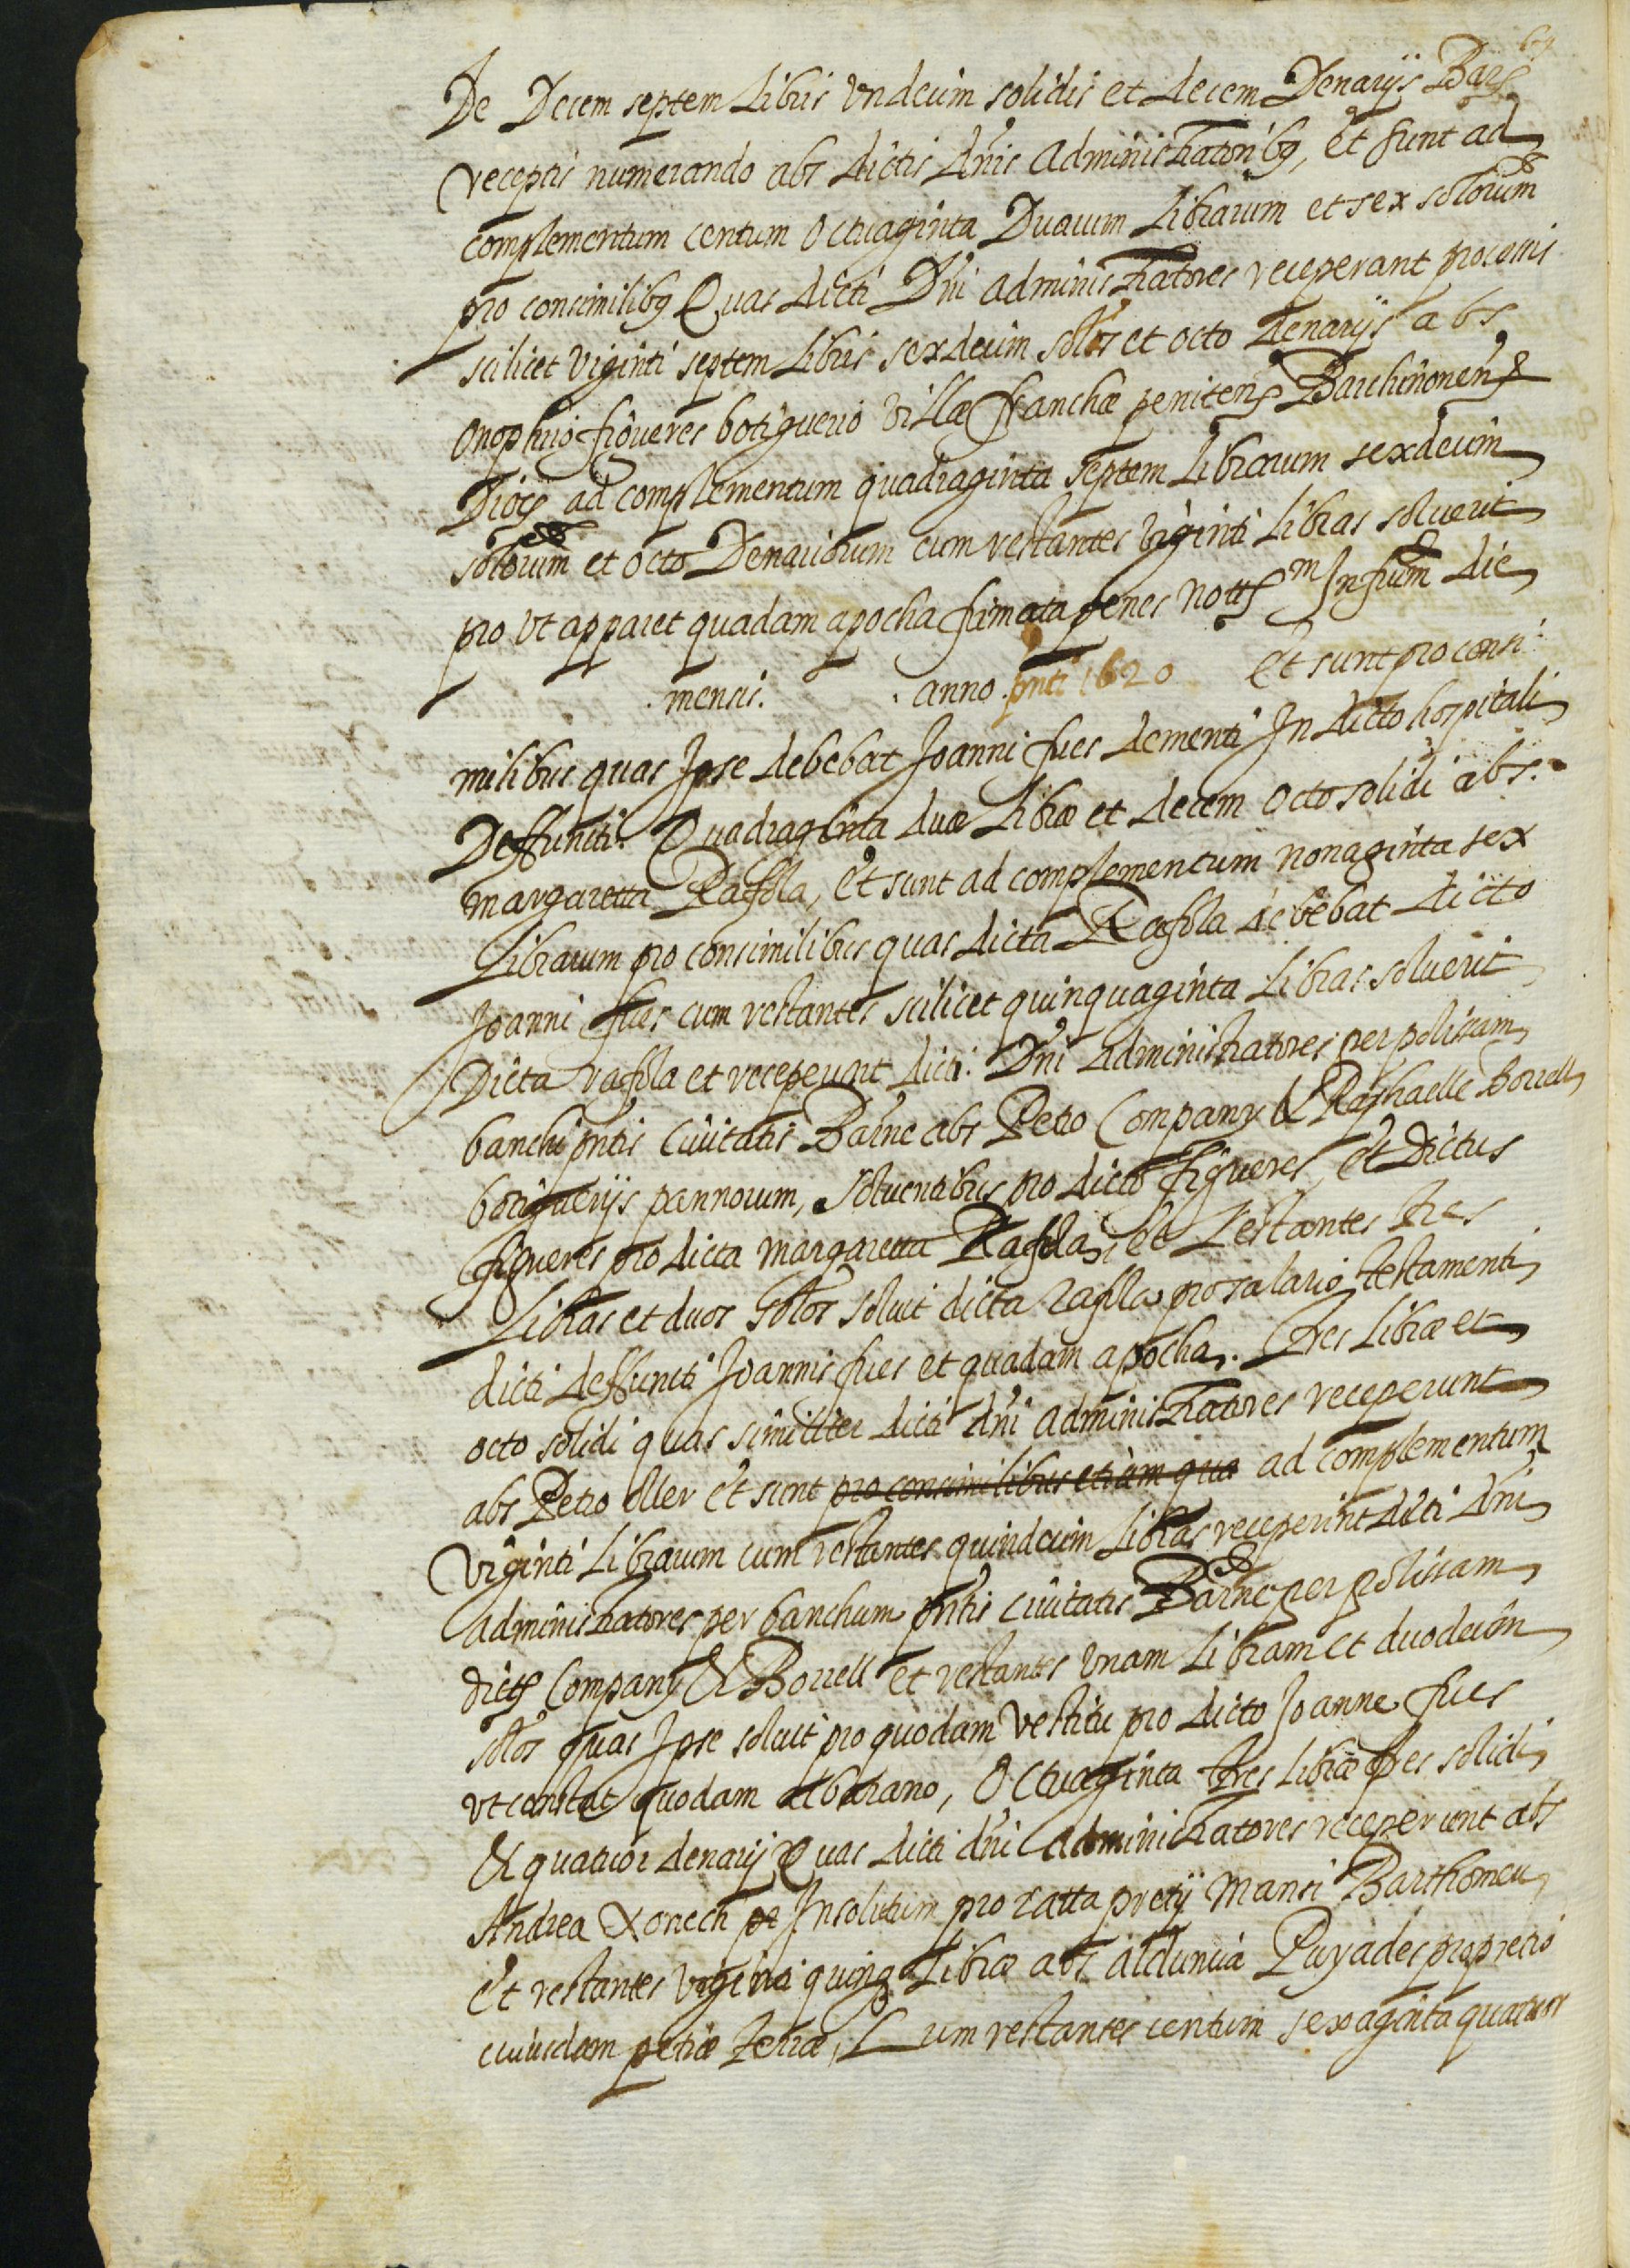 De Decem septem Libris undecim solidis et decem Denarijs Bars
receptis numerando abs dictis dnis Administratoribꝰ, et sunt ad
complementum centum octuaginta Duarum Librarum et sex solorum
pro consimilibꝰ Quas dicti Dni administratores receperant pro censis
scilicet viginti septem Libris sexdecim solos et octo denarijs abs
onophrio figueres botiguerio villæ franchæ peniteñ Barchinoneñ
Dioc̃ ad complementum quadraginta septem Librarum sexdecim
solorum et octo Denariorum cum restantes viginti Libras soluerit
pro ut apparet quadam apocha firmata penes nott̃m Infrum die
mensis. anno pnti 1620 Et sunt pro consi
milibus quas Ipse debebat Joanni fues dementi In dicto hospitali
Deffuncti. Quadraginta duæ Libræ et decem octo solidi abs.
margaretta Rafola, et sunt ad complementum nonaginta sex
Librarum pro consimilibus quas dicta Rafola debebat dicto
Joanni fues cum restantes scilicet quinquaginta Libras soluerit
Dicta rafola et receperunt dicti Dni Administratores per polissam
banchi pntis Ciuitatis Barne abs Petro Company & Raphaelle Borrell
botiguerijs pannorum, soluentibus pro dicto figueres, et Dictus
figueres pro dicta margaretta Rafola, et restantes tres
Libras et duos solos soluit dicta rafola pro salario testamenti
dicti deffuncti Joannis fues et quadam apocha. Tres Libræ et
octo solidi quas similiter dicti dni administratores receperunt
abs Petro oller et sunt pro consimilibus etiam qua ad complementum
viginti Librarum cum restantes quindecim Libras receperint dicti dni
administratores per banchum pntis ciuitatis Barne per polissam
dicts Company & Borrell et restantes unam Libram et duodecim
solos quas Ipse soluit pro quodam vestitu pro dicto Joanne fues
ut constat quodam albarano, Octuaginta tres Libræ tres solidi
& quatuor denarij Quas dicti dni Administratores receperunt abs
Andrea Xonech In solutum pro ratta pretij mansi Barthomeu
Et restantes viginti quinqꝫ Libræ abs aldunsia Puyades pro pretio
cuiusdam petiæ terræ, Cum restantes centum sexaginta quatuor